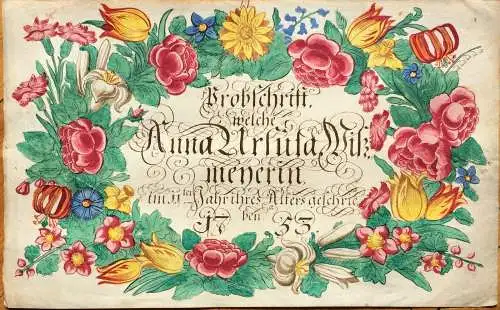 Probschrift,
welche
Anna Ursula Wiß
meyerin
im 11ten Jahr ihres Alters geschrie
17 ben 53.